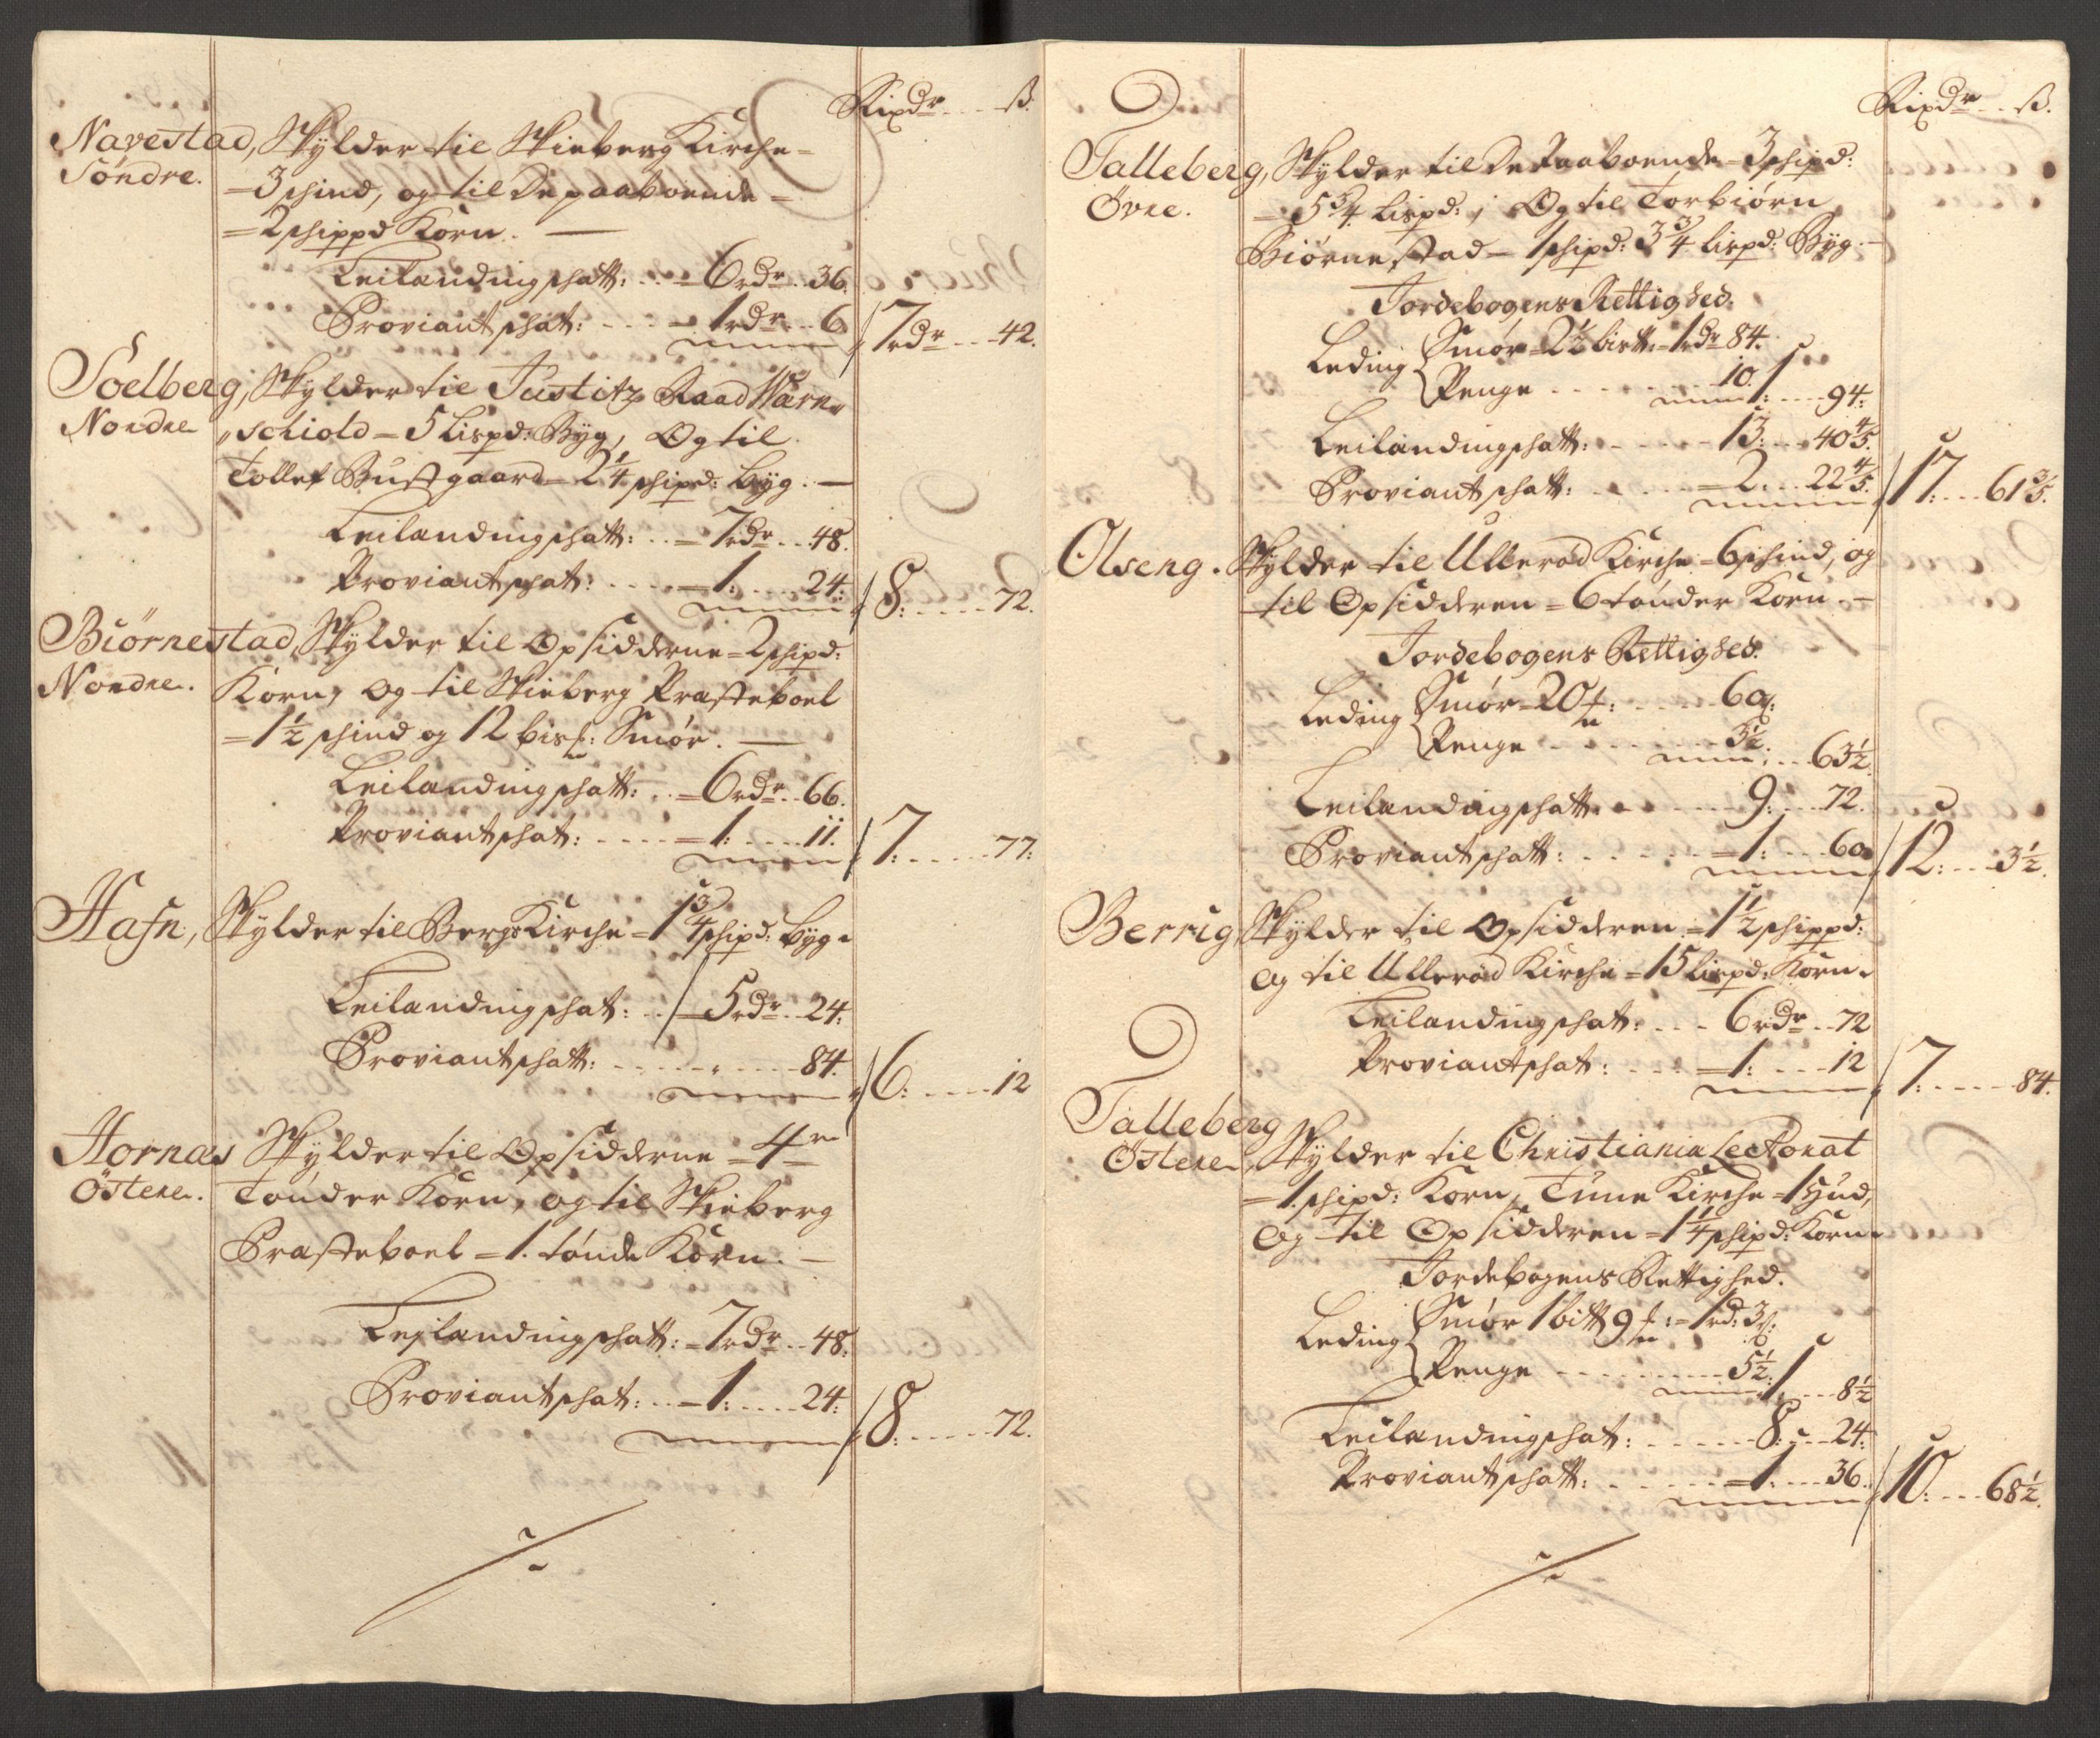 Rixdr ß.
Navestad, Skÿlder til Skieberg Kirche
Söndre.
3 shind, og til De paaboende
2 shippd Korn.
Leilandingshatt: 6 rdr 36.
Proviantshat: 1 rdr 6 7 rdr 42.
Soelberg, Skÿlder til Justitz Raad Wærn
Nordre
schiold 5 Lispd: Bÿg, Og til
Tollef Bustgaard 2 1/4 shipd: bÿg.
Leilandingshatt: 7 rdr 48.
Proviantshat: 1: 24: 8: 72.
Biörnestad, Skÿlder til Opsidderne 2 shipd:
Nordre.
Korn, og til Skieberg Præsteboel
1 1/2 shind og 12 bis: Smör.
Leilandingshatt: 6 rdr 66.
Proviantshat: 1: 11. 7: 77:
Hafn, Skÿlder til Bergs Kirche 1 3/4 shipd: bÿg.
Leilandingshat: 5 rdr 24:
Proviantshatt: 84. 6: 12
Hornæs Skÿlder til Opsidderne 4re
Östere.
Tönder Korn, og til Skieberg
Præsteboel 1. tönde Korn.
Lejlandingshatt: 7 rdr 48:
Proviantshat: 1: 24: 8: 72.
Rixdr ß.
Talleberg, Skÿlder til De Paaboende 3 shipd:
Övre.
5 3/4 Lispd:, Og til Torbiörn
Biörnestad 1 shipd: 3 3/4 lispd: Bÿg.
Jordebogens Rettighed:
Leding Smör 2 1/2 bitt: 1 rdr 84.
Penge 10. 1: 94:
Leilandingshatt: 13: 40 4/5.
Proviantshatt: 2: 22 4/5. 17: 61 3/5.
Olseng. Skÿlder til Ulleröd Kirche 6 shind, og
til Opsidderen 6 tönder Korn.
Jordebogens Rettighed.
Leding Smör 20 60ß:
Penge 3 1/2. 63 1/2.
Leilandingshatt. 9: 72.
Proviantshatt: 1: 60 12: 3 1/2.
Berrig Skÿlder til Opsidderen 1 1/2 shippd:
og til Ulleröd Kirche 15 Lispd: Korn.
Leilandingshat: 6 rdr 72
Proviantshat: 1: 12 7: 84.
Talleberg
Östere, Skÿlder til Christiania Lectorat
1. shipd: Korn, Tune Kirche 1 Hud,
Og til Opsidderen 1 1/4 shipd: Korn.
Jordebogens Rettighed.
Leding Smör 1 bitt 9 : 1 rd: 3ß:
Penge 5 1/2. 1: 8 1/2
Leilandingshat: 8: 24:
Proviantshatt: 1: 36. 10: 68 1/2.